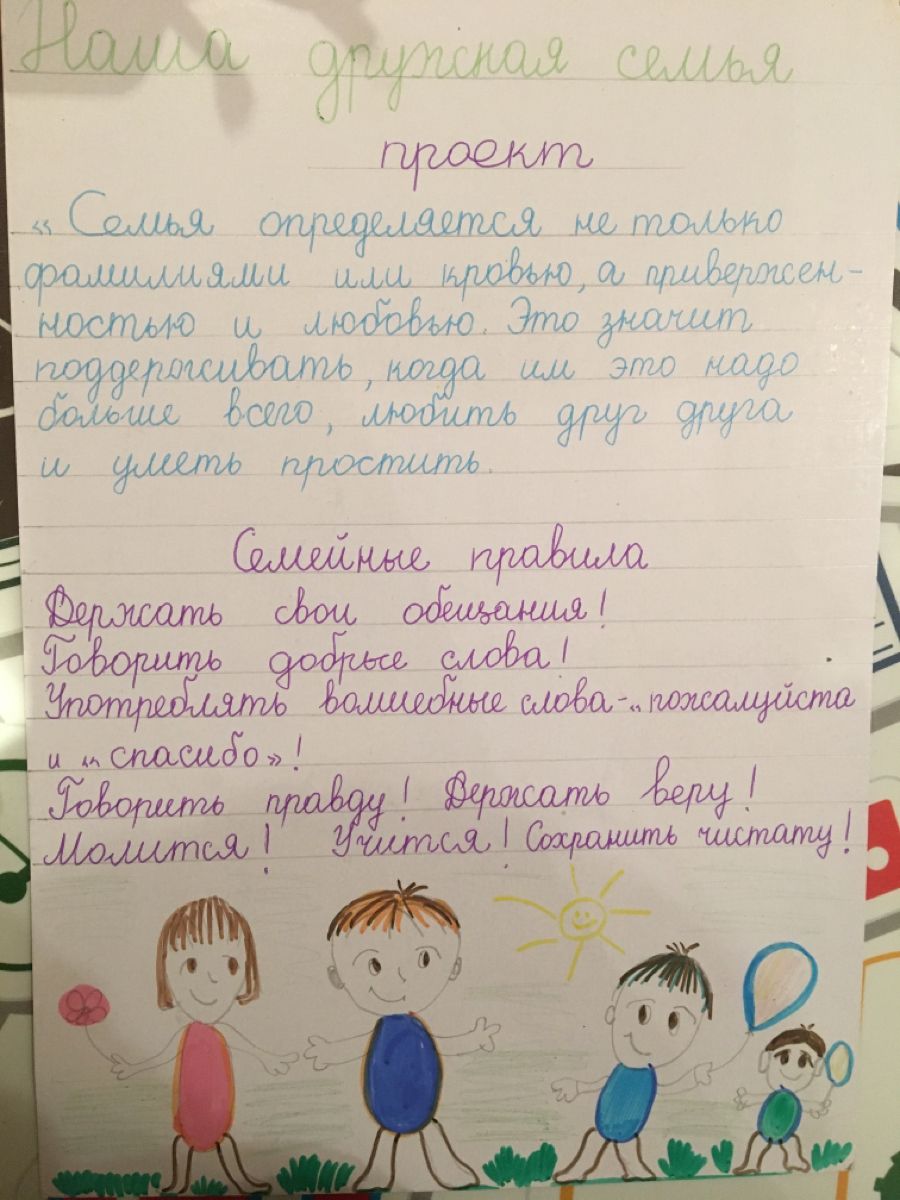 Наша дружная семья
проект
«Семья определяется не только
фамилиями или кровью, а привержен-
ностью и любовью. Это значит
поддерживать, когда им это надо
больше всего, любить друг друга
и уметь простить.
Семейные правила
Держать свои обещания!
Говорить добрые слова!
Употреблять волшебные слова-„пожалуйста
и «спасибо»!
Говорить правду! Держать веру!
Молится! Учится! Сохранить чистату!